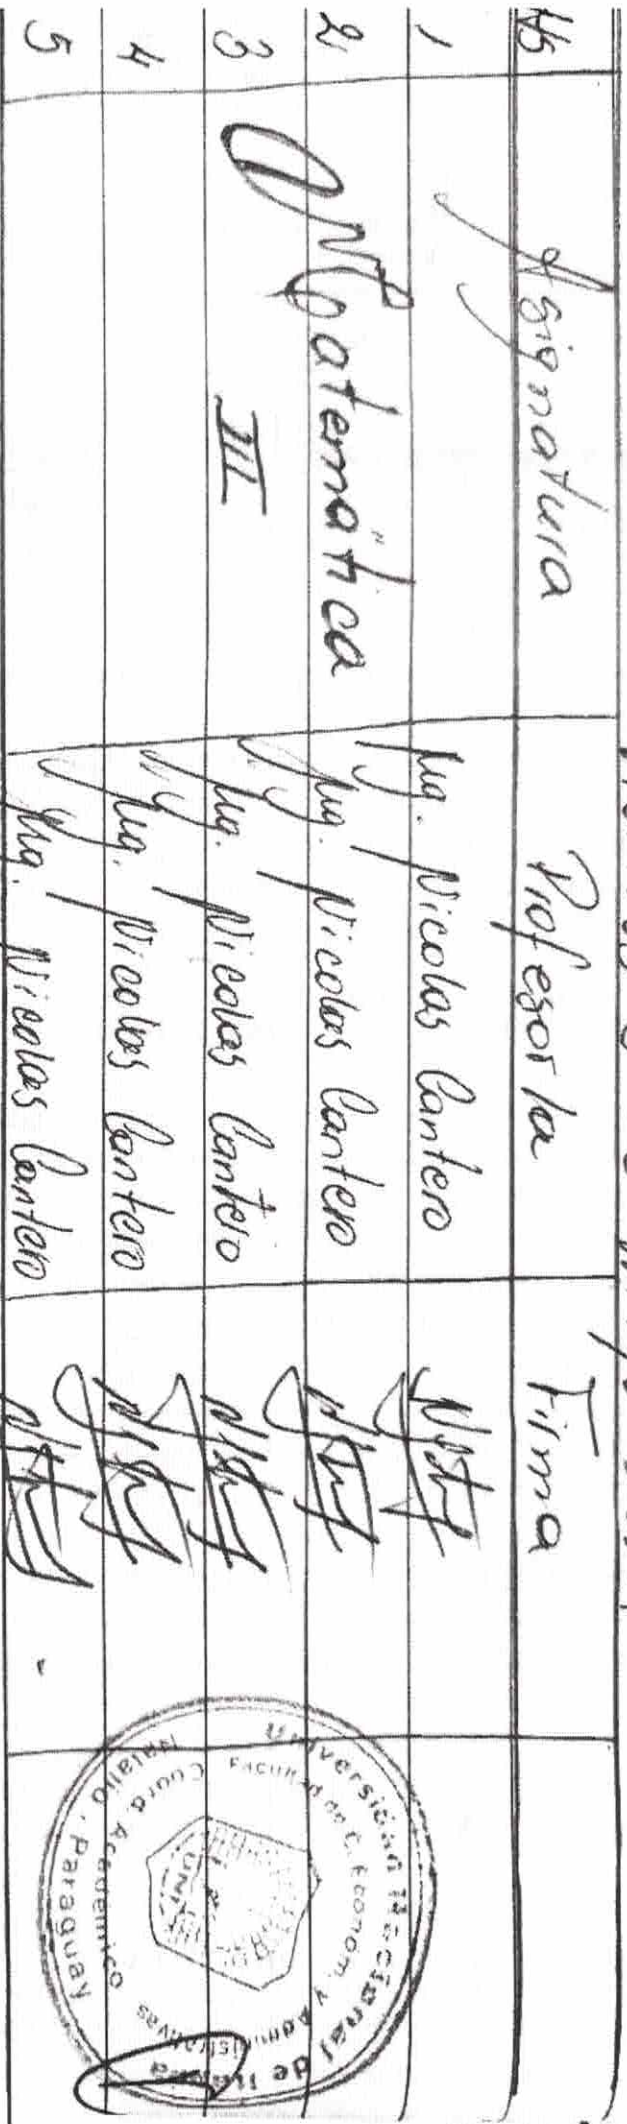 Asignatura Profesor/a Firma
1 Mg. Nicolas Cantero
2 Matemática Mg. Nicolas Cantero
3 III Mg. Nicolas Cantero
4 Mg. Nicolas Cantero
5 Mg. Nicolas Cantero
Universidad Nacional de Itapúa
Facultad de C. Econom. y Administrativas
Coord. Académico
Natalio - Paraguay
UNI